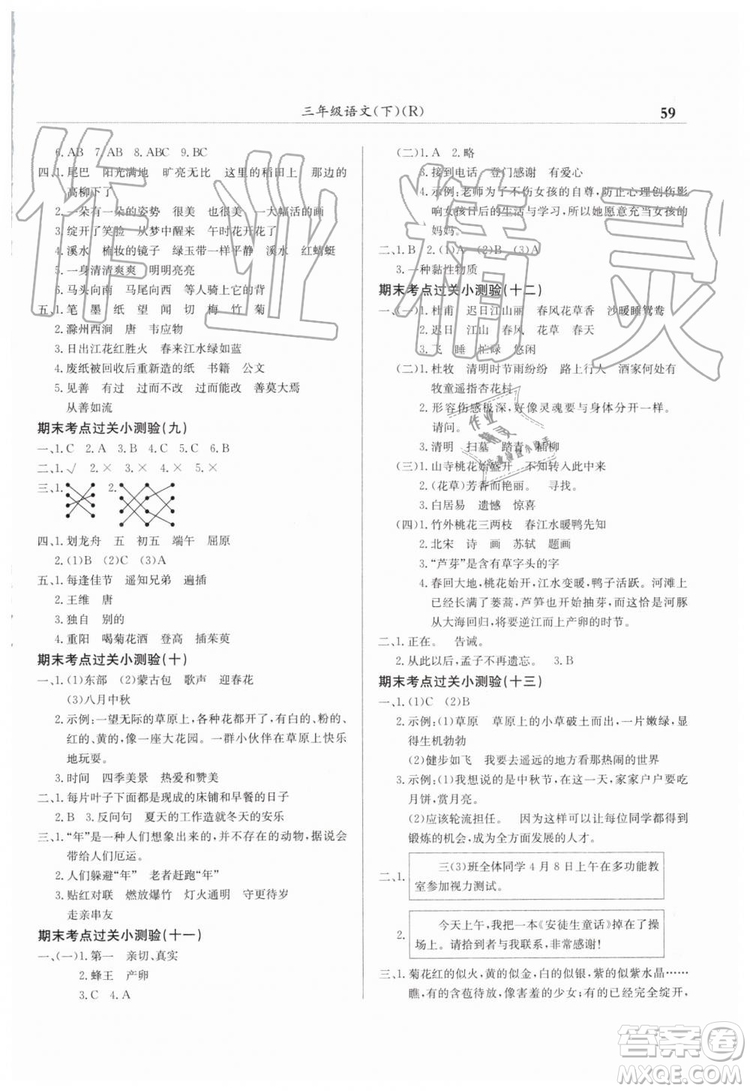 三年级语文(下)(R)
59
6.AB 7.AB 8.ABC 9.C
四、1.尾巴 阳光满地 旷亮无比 这里的稻田上 那里的
高柳下了
2.一朵有一朵的姿势 很美 也很美 一大幅活的画
3.绽开了笑脸 从梦中醒来 开花了
4.溪水 梳妆的镜子 清清的溪水 红蜻蜓
5.一身清清爽爽 明明亮亮
6.马头向南 马尾向西 等他骑上它的时候
五、1.笔 墨 纸 望 闻 切 梅 竹 菊
2.滁州西涧 唐 韦应物
3.日出江花红胜火 春来江水绿如蓝
4.废纸被回收后重新造的纸 书籍 公文
5.见善 有过 过而不改 过而能改 善莫大焉
从善如流
期末考点过关小测验(九)
一、1.C 2.A 3.C 4.D
二、1.√ 2.× 3.× 4.×
三、1. 2.
四、1.划龙舟 五 初五 端午 屈原
2.(1)B (2)C
五、1.每逢佳节 遥知兄弟 遍插
2.王维 唐
3.独自 别的
4.重阳 喝菊花酒 登高 插茱萸
期末考点过关小测验(十)
一、1.(1)东部 (2)蒙古包 歌声 迎春花
(3)八月中秋
2.示例:一望无际的草原上,繁花盛开,有白的、粉的、
红的、黄的,像一座大花园。一群小伙伴在草原上快乐
地玩耍。
3.时间 四季美景 热爱和赞美
二、1.每片叶子下面都是现成的床铺和早餐的日子
2.B 3.反问句 夏天的工作造就冬天的安乐
三、1.“年”是一种人们想象出来的并不存在的动物,据说会
带给人们厄运。
2.人们躲避“年” 老者赶跑“年”
3.贴红对联 燃放爆竹 灯火通明 守更待岁
走亲串友
期末考点过关小测验(十一)
一、(一)1.第一 亲切、真实
2.蜂王 产卵
3.C 4.A
(二)1.A 2.略
3.接到电话 登门感谢 有爱心
4.示例:老师为了不伤女孩的自尊,防止心理创伤影
响女孩日后的生活与学习,所以她愿意充当女孩的
妈妈。
二、1.B 2.(1)A (2)B (3)A
3.一种黏性物质
期末考点过关小测验(十二)
一、(一)1.杜甫 迟日江山丽 春风花草香 沙暖睡鸳鸯
2.迟日 江山 春风 花草
3.飞 睡 忙碌 悠闲
(二)1.杜牧 清明时节雨纷纷 路上行人 酒家何处有
牧童遥指杏花村
2.形容伤感很深,好像灵魂要与身体分开一样。
请问。
3.清明 扫墓 踏青 插柳
(三)1.山寺桃花始盛开 不知转入此中来
2.(花草)芳香艳丽。 完了。
3.白居易 遗憾 惊喜
(四)1.竹外桃花三两枝 春江水暖鸭先知
2.北宋 诗 画 苏轼 题画
3.“芦芽”的上面都是含有草字头的字
4.春回大地,桃花始开,江水变暖,鸭子活跃。河滩上
已经长满了蒌蒿,芦笋也开始抽芽,而这时的河豚
从大海回归,也将要逆江而上产卵的时节。
二、1.正在。 告诫。
2.从此以后,孟子不再遗忘。 3.B
期末考点过关小测验(十三)
一、1.(1)C (2)A
2.示例:(1)草原 草原上的小草破土而出,一片嫩绿,显
得生机勃勃
(2)健步如飞 我要去遥远的地方看那热闹的世界
3.示例:(1)我想说的是中秋节,在这一天,家家户户要吃
月饼,赏月亮。
(2)应该轮流担任。 因为这样可以让更多的同学得到
锻炼的机会,成为全方面发展的人才。
二、1. 三(3)班全体同学4月8日上午在多功能教
室参加视力测试。
2. 今天上午,我把一本《安徒生童话》掉在了操
场上。请拾到者与我联系,非常感谢!
三、1.菊花红的似火,黄的似金,白的似银,紫的似紫水晶……
有的含苞待放,像一位害羞的少女;有的已经全部绽开,
作业精灵
答案卷
MXQE.COM